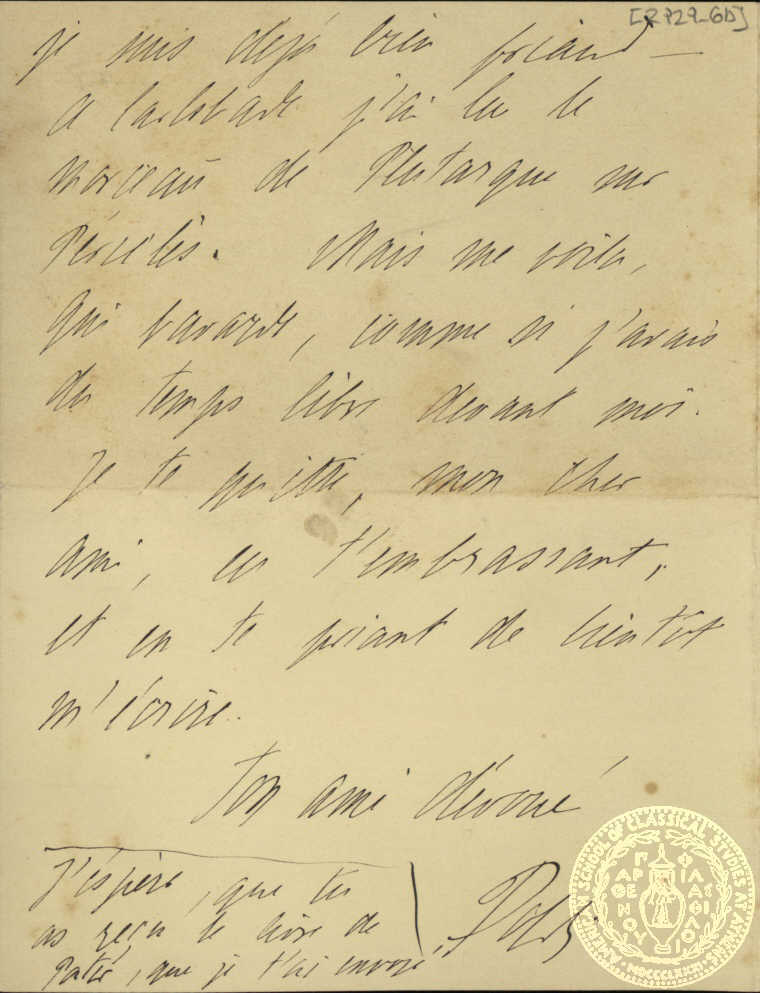 [RP29-6D]
je suis déjà bien friand —
j'ai lu le
morceau de Plutarque sur
Périclès. Mais me voilà,
qui bavarde, comme si j'avais
du temps libre devant moi.
Je te quitte, mon cher
ami, en t'embrassant,
et en te priant de bientôt
m'écrire.
Ton ami dévoué
J'espère, que tu
as reçu le livre de
que je t'ai envoyé.
AMERICAN SCHOOL OF CLASSICAL STUDIES AT ATHENS
ΠΑΡΘΕΝΟΥ ΦΙΛΑΣ ΦΙΛΟΙ
MDCCCLXXXI